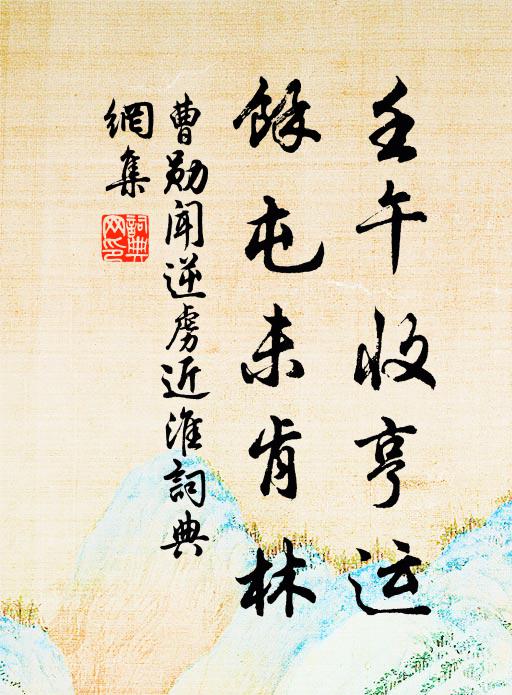 壬午收亨运
餘屯未肯林
曹勋闻逆虏近淮詞典
網集
詞典
网印